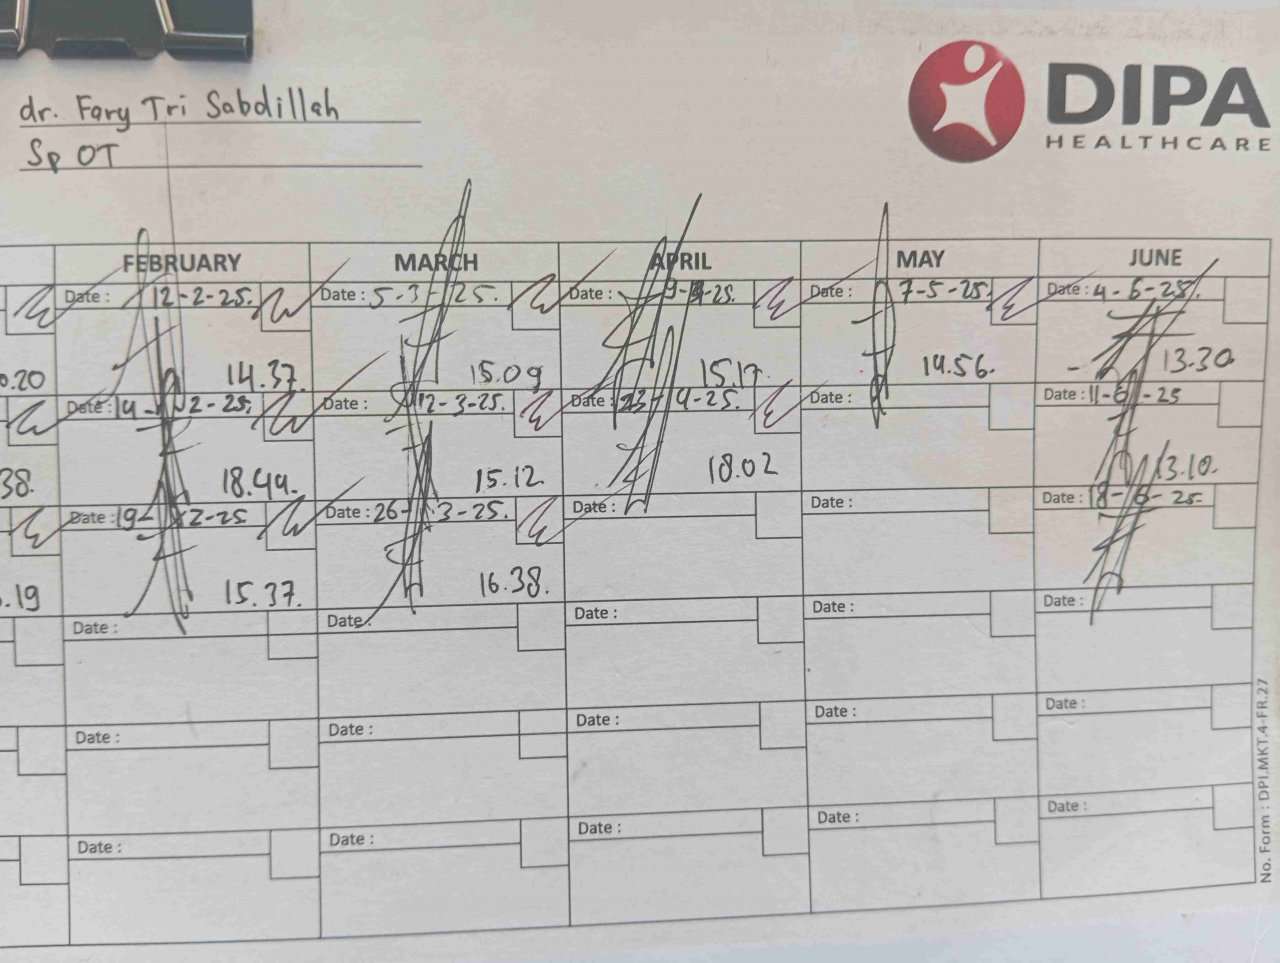 dr. Fary Tri Sabdillah
Sp OT
DIPA
HEALTHCARE
FEBRUARY MARCH APRIL MAY JUNE
Date : 12-2-25. Date : 5-3-25. Date : 9-4-25. Date : 7-5-25. Date : 4-6-25.
0.20 14.37. 15.09 15.17. 14.56. 13.30
Date : 14-2-25. Date : 12-3-25. Date : 23-4-25. Date : Date : 11-6-25
38. 18.44. 15.12. 18.02 13.10.
Date : 19-2-25 Date : 26-3-25. Date : Date : Date : 18-6-25.
.19 15.37. 16.38.
Date : Date : Date : Date : Date :
Date : Date : Date : Date : Date :
Date : Date : Date : Date : Date :
No. Form : DPI.MKT.4-FR.27